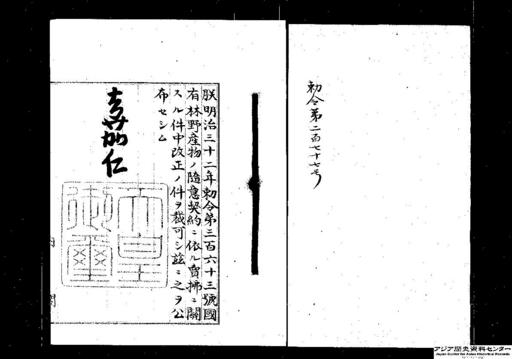 勅令第二百七十七号
朕明治三十二年勅令第三百六十三號國
有林野産物ノ随意契約ニ依ル賣拂ニ關
スル件中改正ノ件ヲ裁可シ茲ニ之ヲ公
布セシム
嘉仁
天皇
御璽
内
閣
アジア歴史資料センター
Japan Center for Asian Historical Records